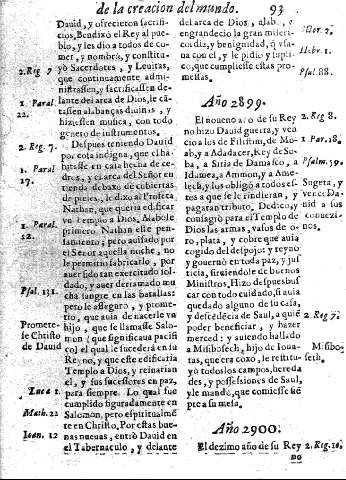 de la creacion del mundo. 93
Dauid, y ofrecieron sacrifi-
cios, Bendixò el Rey al pue-
blo, y les dio a todos de co-
mer, y nombrò, y constitu-
yò Sacerdotes, y Leuitas,
que continuamente admi-
nistrassen, y sacrificassen de-
lante del arca de Dios, le cã-
tassen alabanças diuinas, y
hiziessen musica, con todo
genero de instrumentos.
Despues teniendo Dauid
por cosa indigna, que el ha-
bitasse en casa hecha de ce-
dros, y el arca del Señor en
tienda debaxo de cubiertas
de pieles, le dixo al Profeta
Nathan, que queria edificar
vn Templo a Dios, Alabole
primero Nathan este pen-
samiento; pero auisado por
el Señor aquella noche, no
le permitiò fabricarlo, por
auer sido tan exercitado sol-
dado, y auer derramado mu
cha sangre en las batallas:
pero le assegurò, y prome-
tio, que auia de nacerle vn
hijo, que se llamasse Salo-
mon (que significaua pacifi
co) el qual le sucederia en su
Reyno, y que este edificaria
Templo a Dios, y reinarian
el, y sus sucessores en paz,
para siempre. Lo qual fue
cumplido figuradamente en
Salomon, pero espiritualmẽ
te en Christo, Por estas bue-
nas nueuas, entrò Dauid en
el Tabernaculo, y delante
2. Reg. 7
1. Paral.
22.
2. Reg. 7.
1. Paral
17.
1. Paral
22.
Psal. 131.
Promete-
se Christo
de Dauid
Luca 1.
Math. 21
Ioan. 12
del arca de Dios, alabò, e
engrandecio la gran miseri-
cordia, y benignidad, q̃ vsa-
ua con el, y le pidio y supli-
cò, que cumpliesse estas pro-
messas.
Año 2899.
El noueno año de su Rey
no hizo Dauid guerra, y ven
cio a los de Filistim, de Mo-
ab, y a Adadacer, Rey de So-
ba, a Siria de Damasco, a
Idumea, a Ammon, y a Ame-
lech, y los obligò a todos es-
tos a que se le rindieran, y
pagaran tributo, Dedicò, y
consagrò para el Templo de
Dios las armas, vasos de o-
ro, plata, y cobre que auia
cogido del despojo; y reynò
y gouernò en toda paz, y jus
ticia, siruiendole de buenos
Ministros, Hizo despues bus
car con todo cuidado, si auia
quedado alguno de su casa,
y descẽdecia de Saul, a quiẽ
poder beneficiar, y hazer
merced: y auiendo hallado
a Misibosech, hijo de Iona-
tas, que era coxo, le restitu-
yò todos los campos, hereda
des, y possessiones de Saul,
y le mandò, que comiesse siẽ
pre a su mesa.
Año 2900.
El dezimo año de su Rey
no
Hebr. 1.
Psal. 88.
2. Reg 8.
1. Par. 18.
Psalm. 59.
Sugeta, y
vence Da-
uid a sus
conuezi-
nos.
2. Reg 7.
Misibo-
seth.
2. Reg. 10.